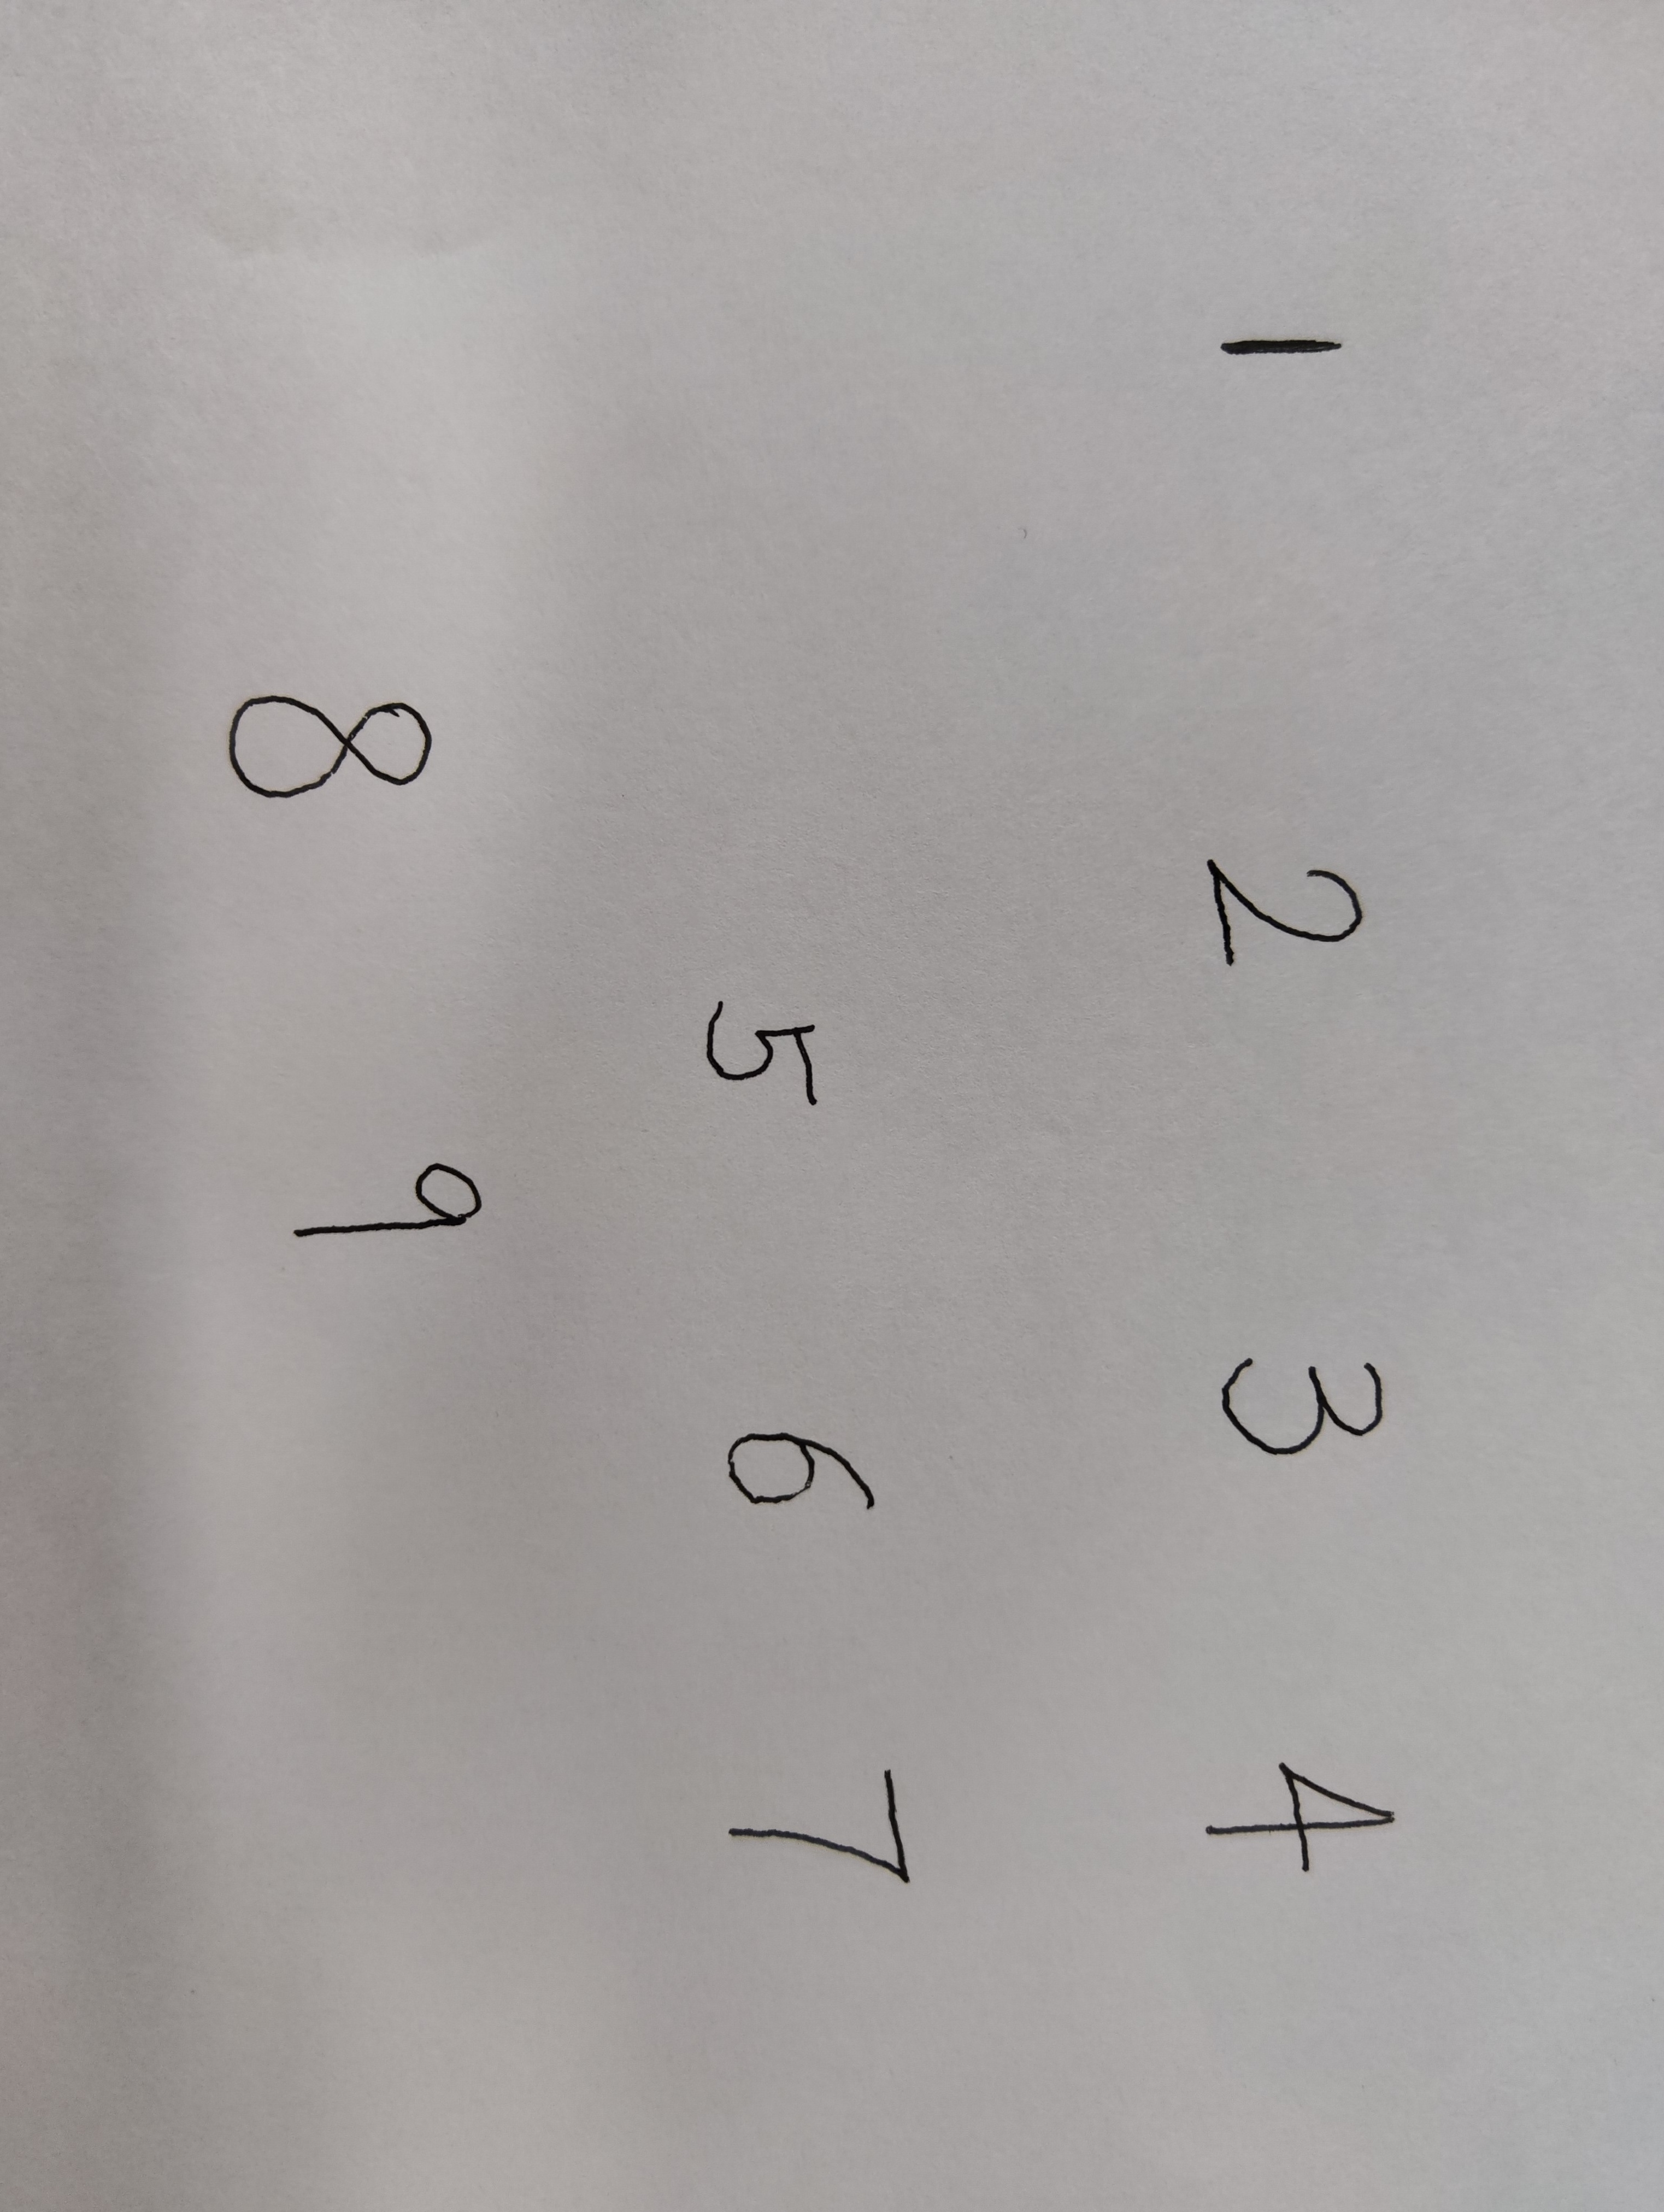 1 2 3 4
5 6 7
8 9